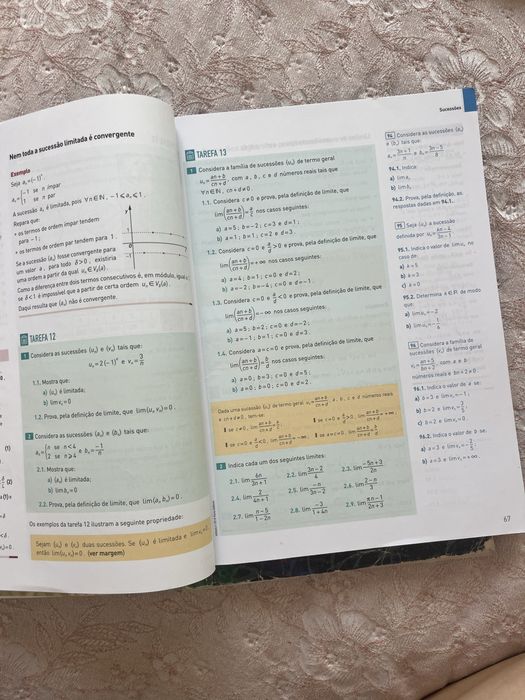 Nem toda a sucessão limitada é convergente
Exemplo
Seja aₙ=(-1)ⁿ.
aₙ={-1 se n ímpar
1 se n par
A sucessão aₙ é limitada, pois ∀n∈ℕ, -1⩽aₙ⩽1.
Repara que:
• os termos de ordem ímpar tendem
para -1;
• os termos de ordem par tendem para 1.
Se a sucessão (aₙ) fosse convergente para
um valor a, para todo δ>0, existiria
uma ordem a partir da qual uₙ∈V_δ(a).
Como a diferença entre dois termos consecutivos é, em módulo, igual a
se δ<1 é impossível que a partir de certa ordem uₙ∈V_δ(a).
Daqui resulta que (aₙ) não é convergente.
y
1
-1
TAREFA 12
1 Considera as sucessões (uₙ) e (vₙ) tais que:
uₙ=2(-1)ⁿ e vₙ=3/n
1.1. Mostra que:
a) (uₙ) é limitada;
b) lim vₙ=0
1.2. Prova, pela definição de limite, que lim(uₙvₙ)=0.
2 Considera as sucessões (aₙ) e (bₙ) tais que:
aₙ={n se n<4
2 se n⩾4 e bₙ=-1/n
2.1. Mostra que:
a) (aₙ) é limitada;
b) lim bₙ=0
2.2. Prova, pela definição de limite, que lim(aₙbₙ)=0.
Os exemplos da tarefa 12 ilustram a seguinte propriedade:
Sejam (uₙ) e (vₙ) duas sucessões. Se (uₙ) é limitada e lim vₙ=0
então lim(uₙvₙ)=0. (ver margem)
Sucessões
TAREFA 13
1 Considera a família de sucessões (uₙ) de termo geral
uₙ=(an+b)/(cn+d), com a, b, c e d números reais tais que
∀n∈ℕ, cn+d≠0.
1.1. Considera c≠0 e prova, pela definição de limite, que
lim((an+b)/(cn+d))=a/c nos casos seguintes:
a) a=5; b=-2; c=3 e d=1;
b) a=1; b=1; c=2 e d=3.
1.2. Considera c=0 e a/d>0 e prova, pela definição de limite, que
lim((an+b)/(cn+d))=+∞ nos casos seguintes:
a) a=4; b=1; c=0 e d=2;
b) a=-2; b=-4; c=0 e d=-1.
1.3. Considera c=0 e a/d<0 e prova, pela definição de limite, que
lim((an+b)/(cn+d))=-∞ nos casos seguintes:
a) a=5; b=2; c=0 e d=-2;
b) a=-1; b=1; c=0 e d=3.
1.4. Considera a=c=0 e prova, pela definição de limite, que
lim((an+b)/(cn+d))=b/d nos casos seguintes:
a) a=0; b=3; c=0 e d=5;
b) a=0; b=0; c=0 e d=2.
Dada uma sucessão (uₙ) de termo geral uₙ=(an+b)/(cn+d), a, b, c, d números reais
e cn+d≠0, tem-se:
se c≠0, lim (an+b)/(cn+d)=a/c;
se c=0 e a/d>0, lim (an+b)/(cn+d)=+∞;
se c=0 e a/d<0, lim (an+b)/(cn+d)=-∞;
se a=c=0, lim (an+b)/(cn+d)=b/d.
2 Indica cada um dos seguintes limites:
2.1. lim 6n/(3n+1) 2.2. lim (3n-2)/4 2.3. lim (-5n+3)/(2n)
2.4. lim 2/(4n+1) 2.5. lim -n/(3n-2) 2.6. lim (2-n)/3
2.7. lim (n-5)/(1-2n) 2.8. lim -3/(1+4n) 2.9. lim (πn-1)/(2n+3)
94 Considera as sucessões (aₙ)
e (bₙ) tais que:
aₙ=(3n+1)/n e bₙ=(3n-5)/8
94.1. Indica:
a) lim aₙ
b) lim bₙ
94.2. Prova, pela definição, as
respostas dadas em 94.1.
95 Seja (uₙ) a sucessão
definida por: uₙ=(kn-4)/(3n-1)
95.1. Indica o valor de lim uₙ no
caso de:
a) k=5
b) k=3
c) k=0
95.2. Determina k∈ℝ de modo
que:
a) lim uₙ=-2
96 Considera a família de
sucessões (vₙ) de termo geral
números reais e
96.1. Indica o valor de a se:
a) b=3 e lim vₙ=-1;
c) b=2 e lim vₙ=0
96.2. Indica o valor de b se:
b) a=3 e lim vₙ=+∞.
67